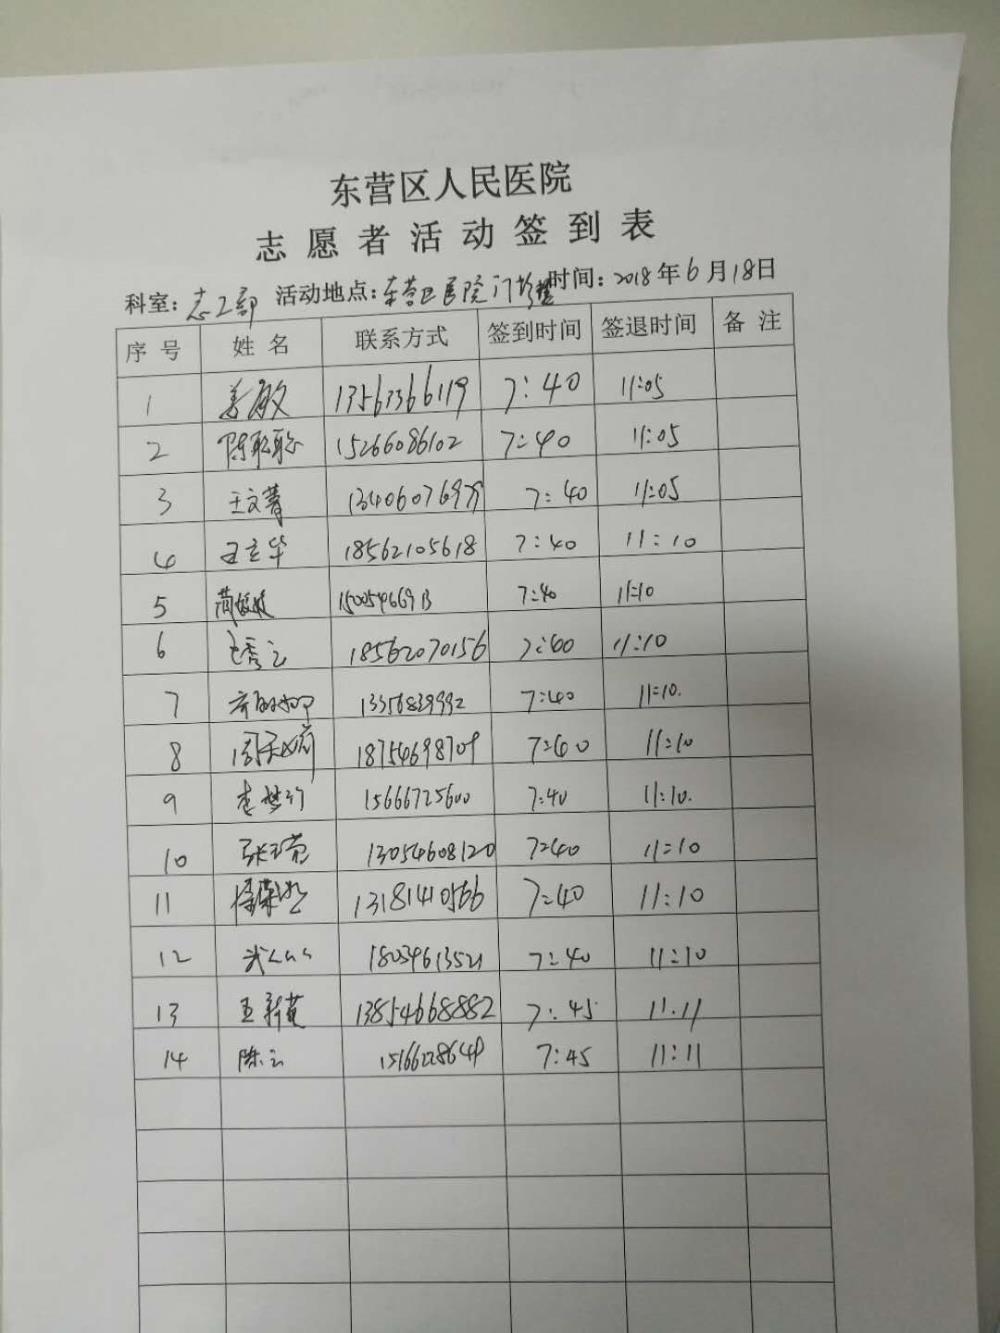 东营区人民医院
志愿者活动签到表
科室：志工部 活动地点：东营区医院门诊楼 时间：2018年6月18日
序号 姓名 联系方式 签到时间 签退时间 备注
1 姜敏 13563366119 7:40 11:05
2 陈聪聪 15266086102 7:40 11:05
3 王文菁 7:40 11:05
4 王立华 18562105618 7:40 11:10
5 7:40 11:10
6 王秀云 18562070156 7:40 11:10
7 13356839992 7:40 11:10.
8 18754698709 7:40 11:10
9 李梦行 15666725600 7:40 11:10.
10 张玉莹 13054608120 7:40 11:10
11 13181410566 7:40 11:10
12 18054613521 7:40 11:10
13 王新苗 13854668882 7:45 11:11
14 陈云 15166228649 7:45 11:11